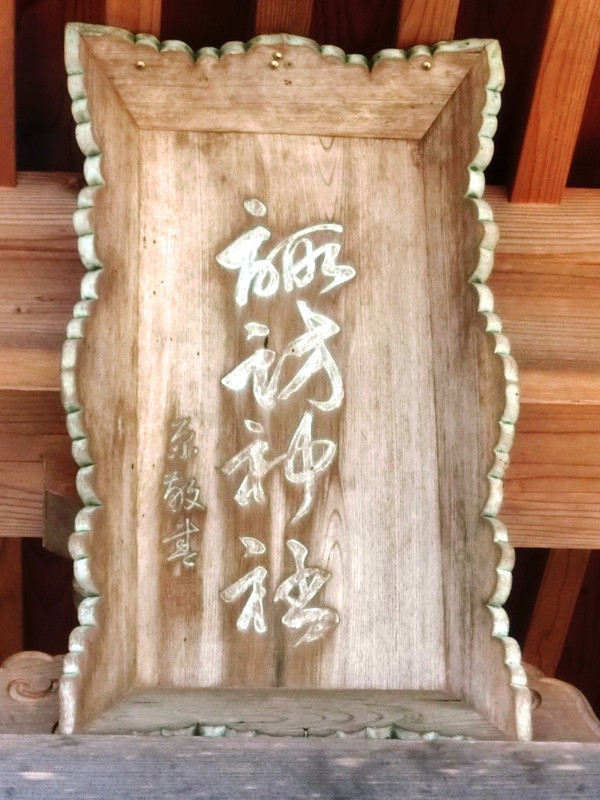 諏訪神社
宗敬其